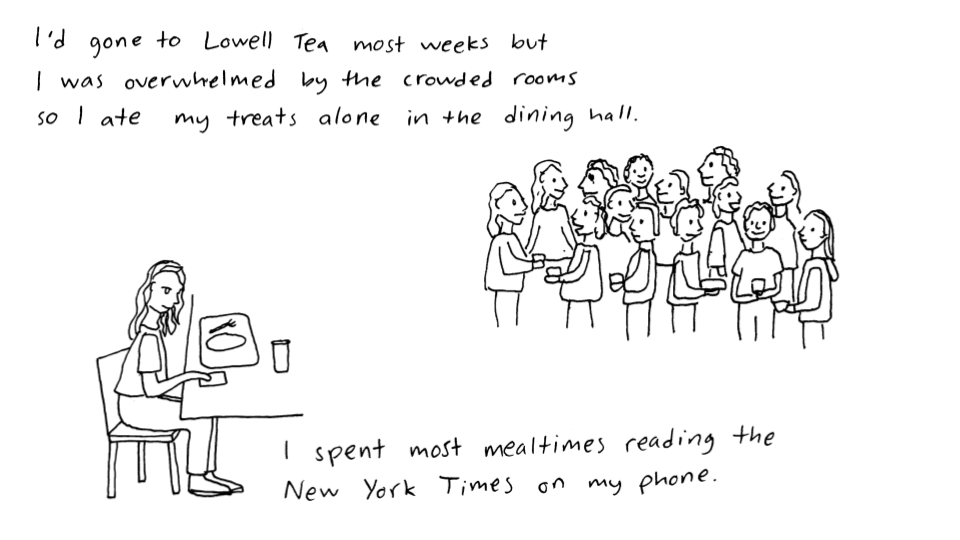 I'd gone to Lowell Tea most weeks but
I was overwhelmed by the crowded rooms
so I ate my treats alone in the dining hall.
I spent most mealtimes reading the
New York Times on my phone.